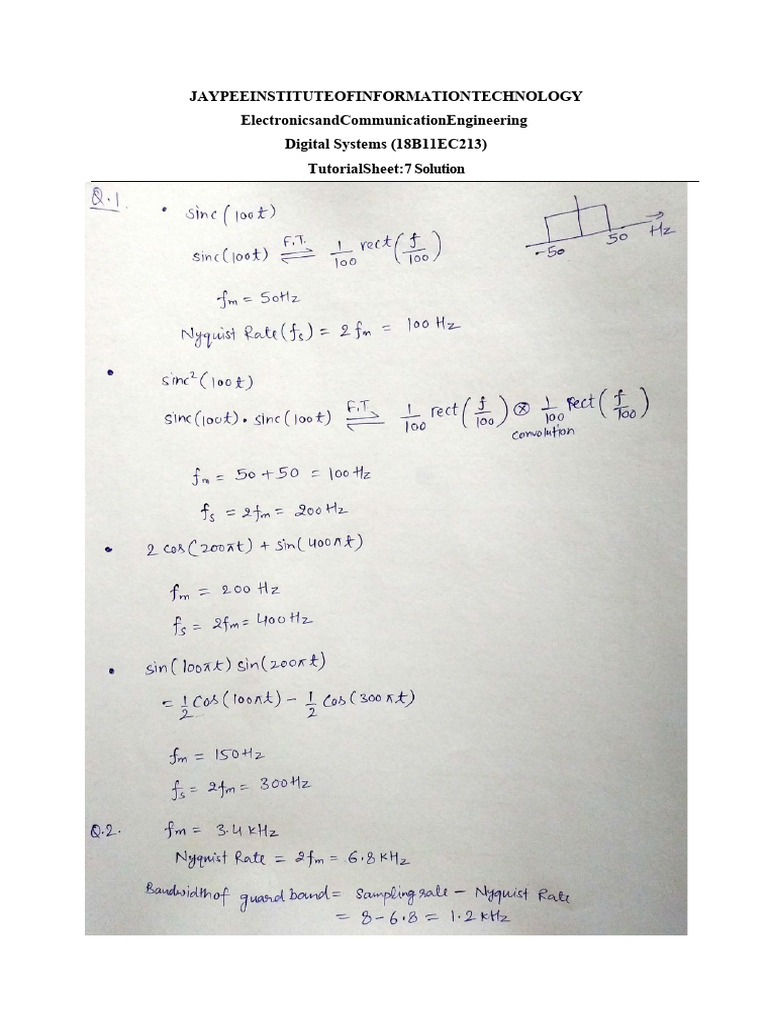 JAYPEEINSTITUTEOFINFORMATIONTECHNOLOGY
ElectronicsandCommunicationEngineering
Digital Systems (18B11EC213)
TutorialSheet:7 Solution
Q.1. • sinc(100t)
-50 50 Hz
sinc(100t) F.T. ⇌ 1/100 rect(f/100)
fm = 50Hz
Nyquist Rate(fs) = 2fm = 100 Hz
• sinc²(100t)
sinc(100t) • sinc(100t) F.T. ⇌ 1/100 rect(f/100) ⊗ 1/100 Rect(f/100)
convolution
fm = 50 + 50 = 100Hz
fs = 2fm = 200Hz
• 2 cos(200πt) + sin(400πt)
fm = 200 Hz
fs = 2fm = 400Hz
• sin(100πt) sin(200πt)
= 1/2 Cos(100πt) - 1/2 Cos(300πt)
fm = 150Hz
fs = 2fm = 300Hz
Q.2. fm = 3.4 kHz
Nyquist Rate = 2fm = 6.8 kHz
Bandwidth of guard band = Sampling rate - Nyquist Rate
= 8 - 6.8 = 1.2 kHz